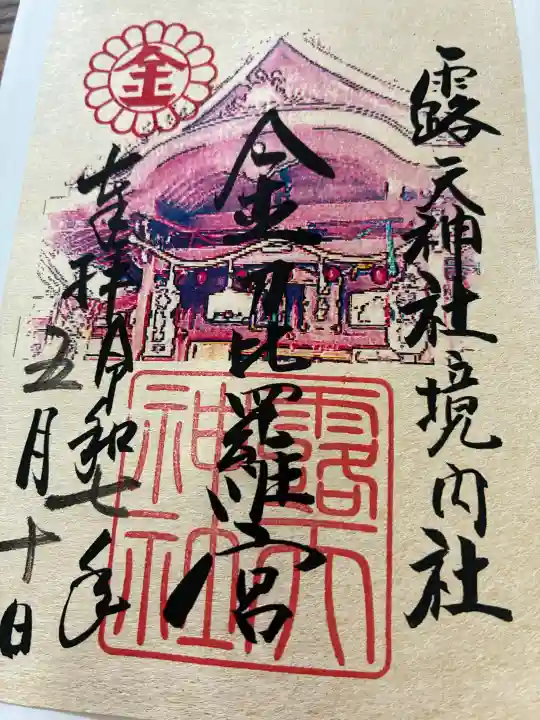 露天神社境内社
金刀比羅宮
奉拝 令和七年
五月十日
金
露天
神社